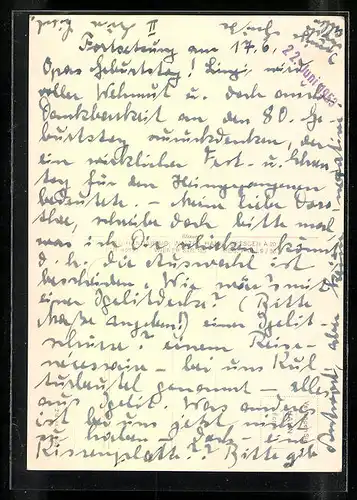 II
Fortsetzung am 17.6.
22. Juni 1953
Opas Geburtstag! Lingi, wird
voller Wehmut u. doch auch
Dankbarkeit an den 80. Ge-
burtstag zurückdenken, der
ein wirklicher Fest- u. Ehren
tag für den Heimgegangenen
bedeutete. - Meine liebe Doro
thee, schreibe doch bitte mal
was ich Dir schicken kann,
d. h. die Auswahl ist
bescheiden. Wie wäre's mit
einer Igelitdecke? (Bitte
Maße angeben!) einer Igelit-
schürze? einem Reise-
necessaire - bei uns Kul
turbeutel genannt - alles
aus Igelit. Was anderes
ist bei uns jetzt nicht
zu haben - doch - eine
Kissenplatte?? Bitte gib